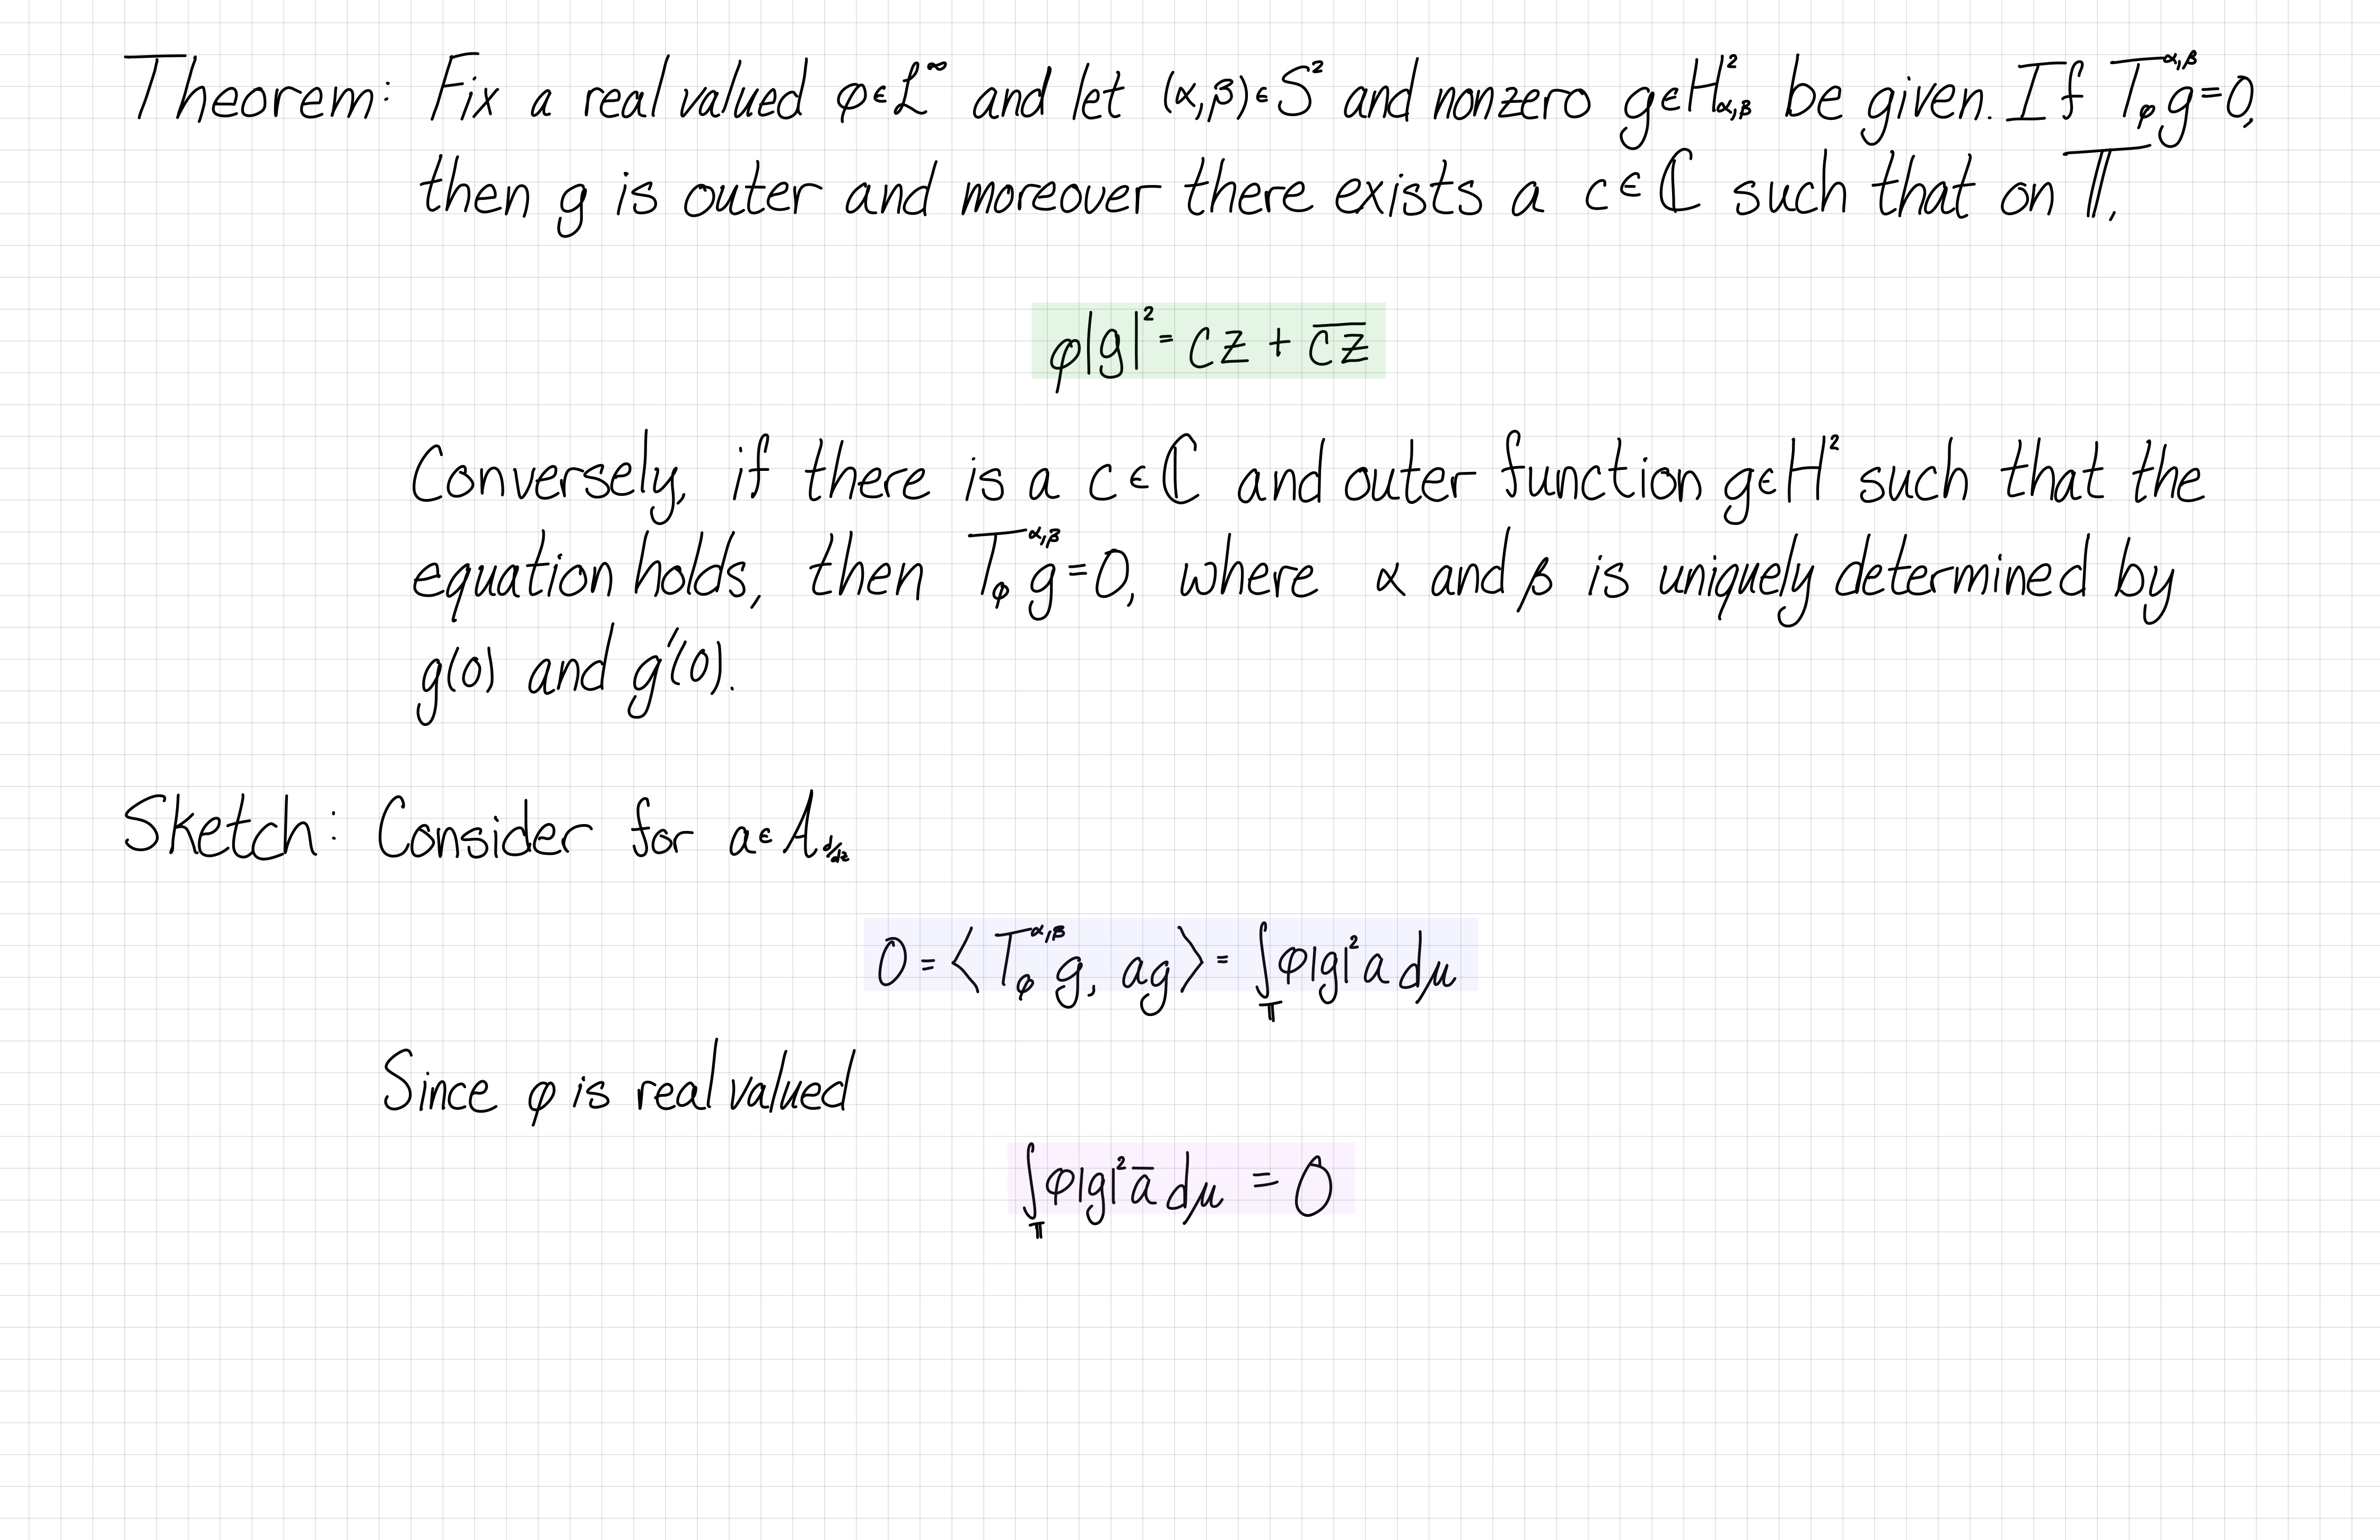 Theorem: Fix a real valued φ∈L^∞ and let (α,β)∈S² and nonzero g∈H²_{α,β} be given. If T_φ^{α,β} g=0,
then g is outer and moreover there exists a c∈ℂ such that on 𝕋,
φ|g|² = cz + \overline{cz}
Conversely, if there is a c∈ℂ and outer function g∈H² such that the
equation holds, then T_φ^{α,β} g=0, where α and β is uniquely determined by
g(0) and g′(0).
Sketch: Consider for a∈A_{d/dz}
0 = ⟨T_φ^{α,β} g, ag⟩ = ∫_𝕋 φ|g|² a dμ
Since φ is real valued
∫_𝕋 φ|g|² \overline{a} dμ = 0